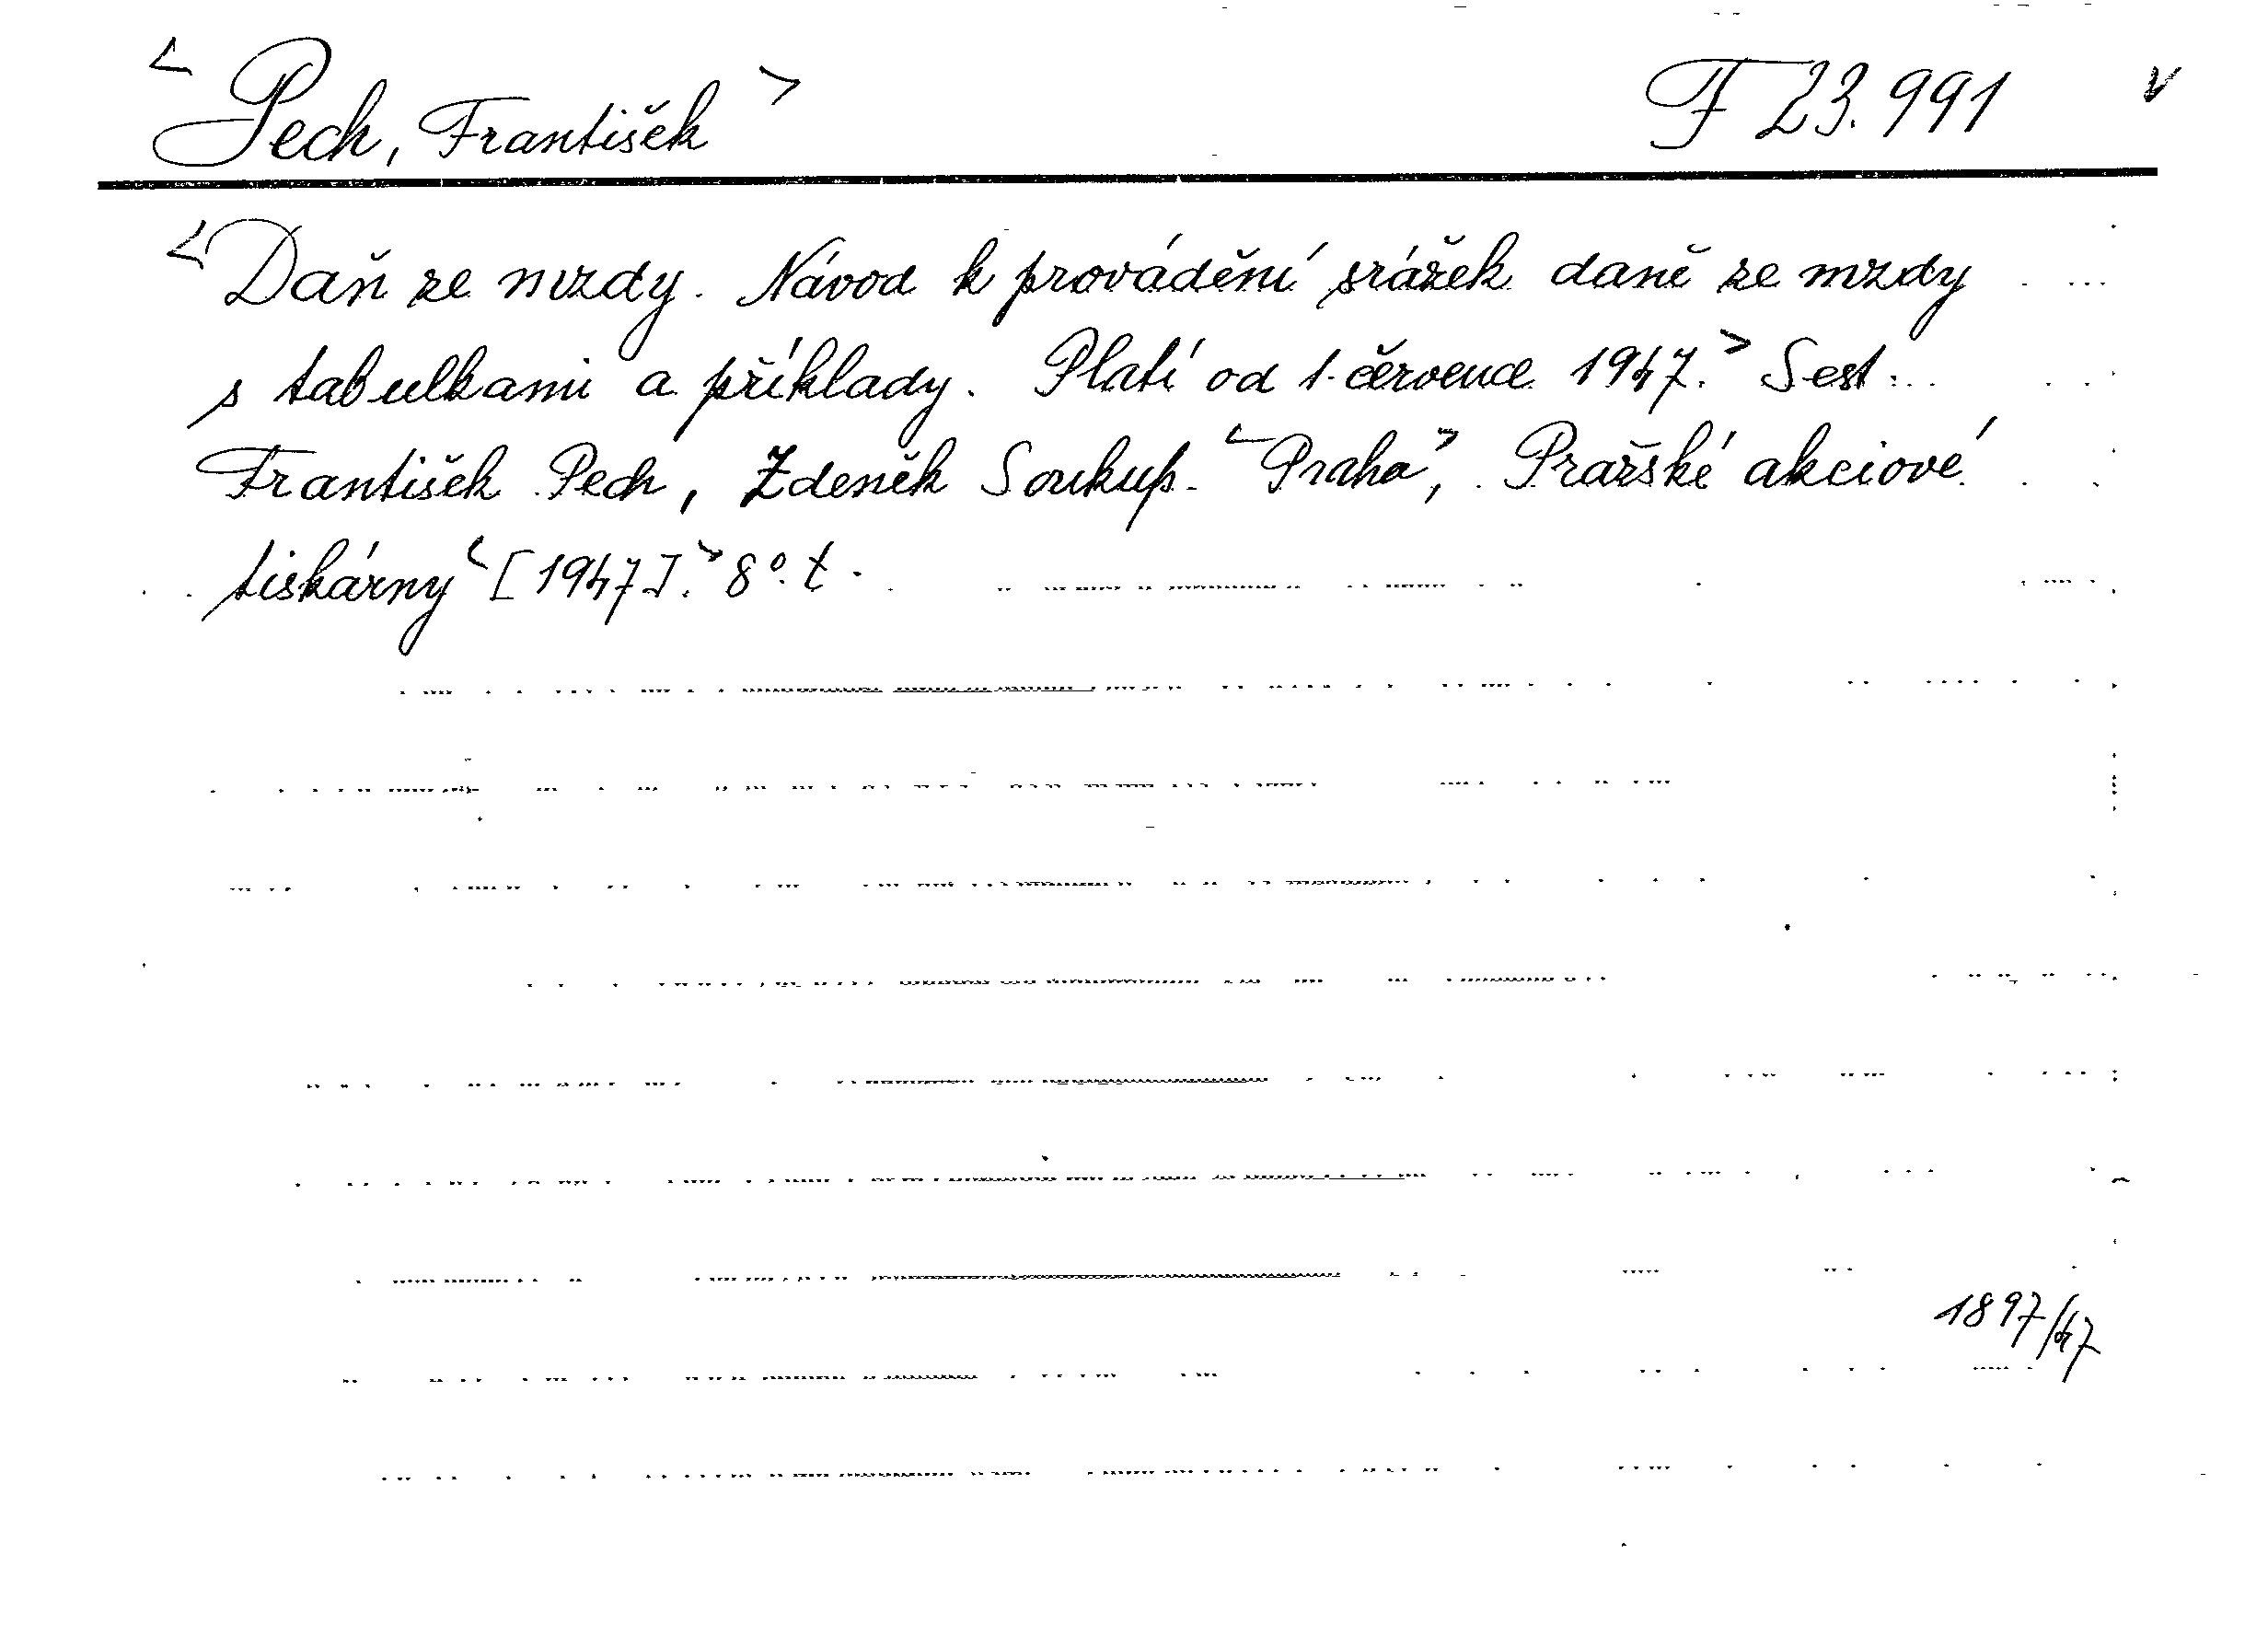 <Pech, František> F 23.991 v
<Daň ze mzdy. Návod k provádění srážek daně ze mzdy
s tabulkami a příklady. Platí od 1. července 1947.> Sest.
František Pech, Zdeněk Soukup. <Praha>, Pražské akciové
tiskárny <[1947].> 8°. t.
1897/47